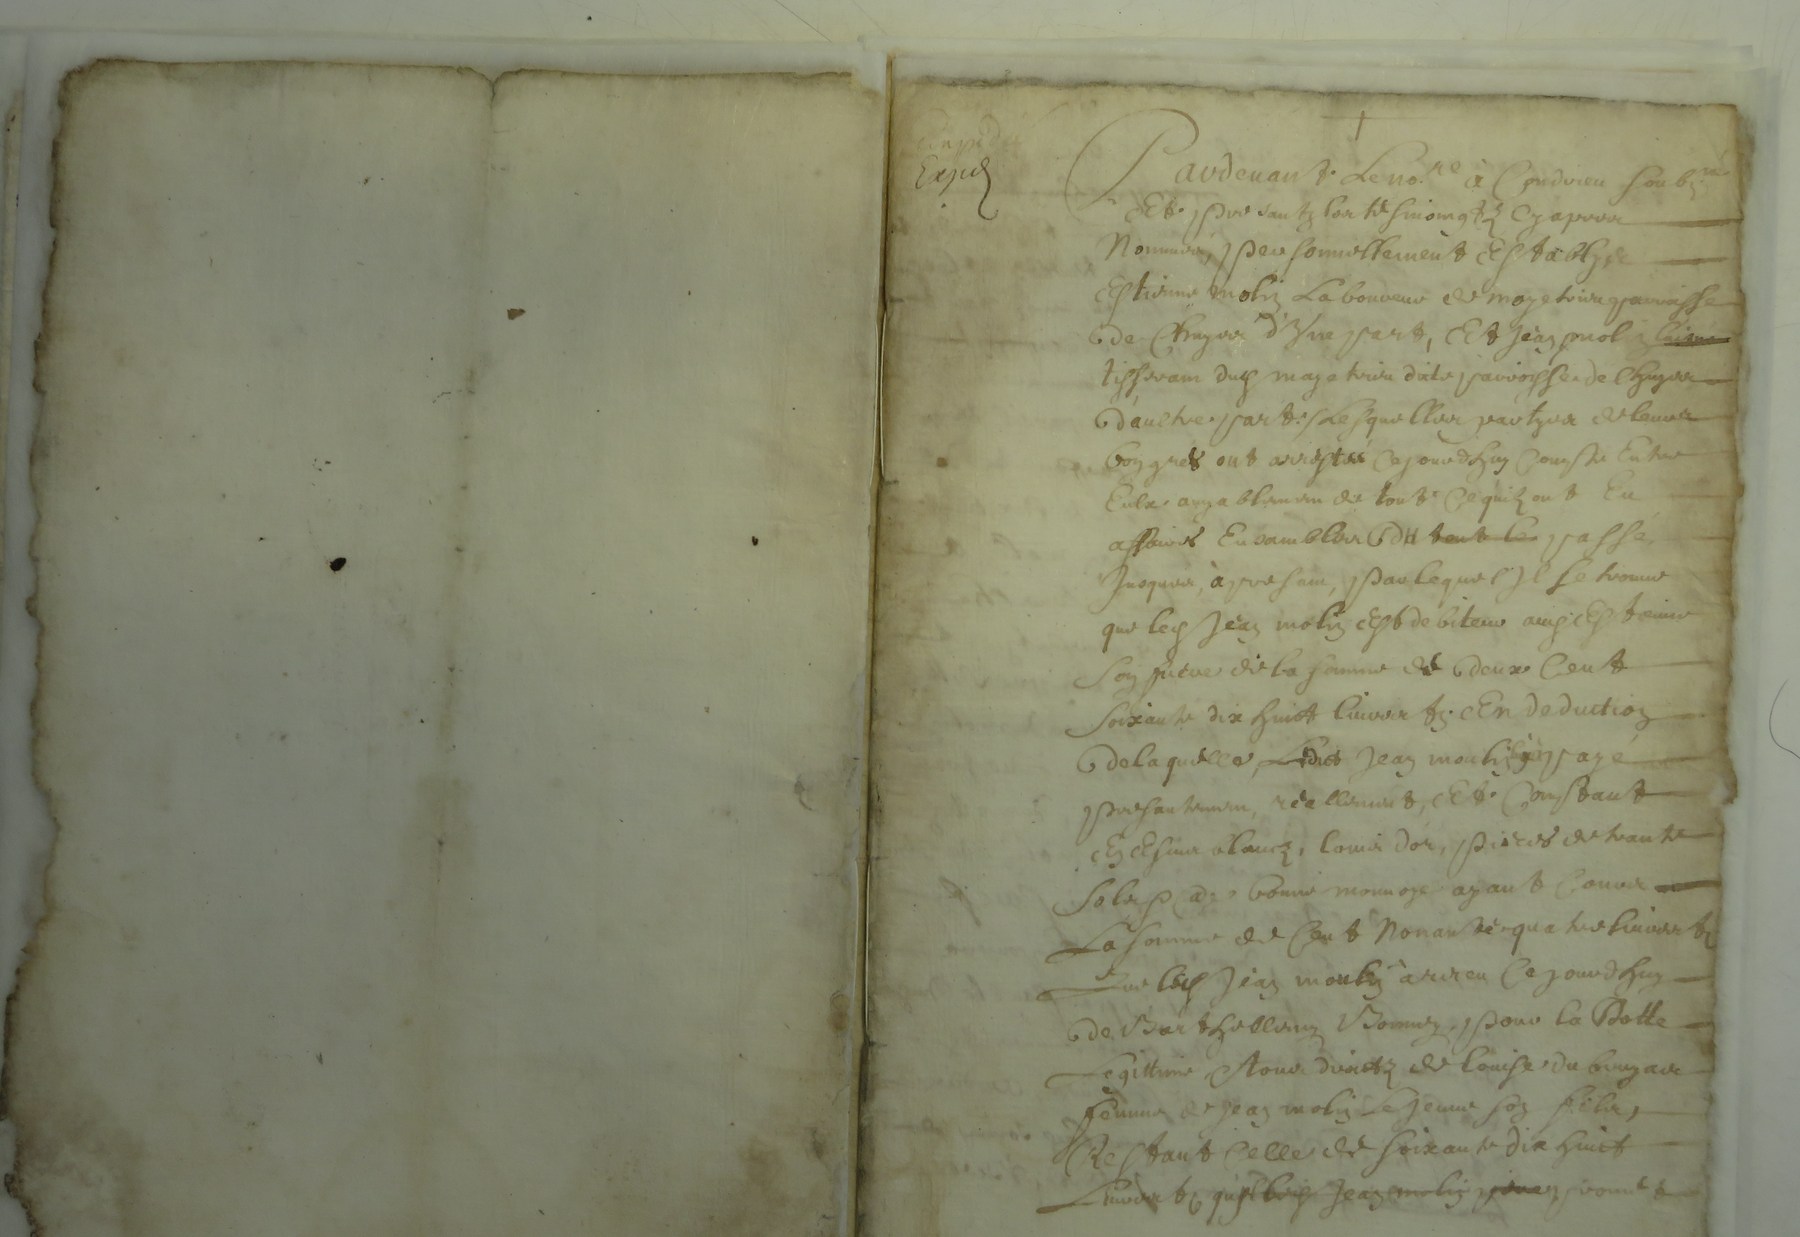 Expéd
Pardevant Le no.re à Condrieu soubz.né
Et presantz les tesmoingtz cy apres
Nommés, personnellement Estably,
Estienne molin Laboureur de
de Chuyer d'Une part, Et Jean molin
tisseran dud parroisse de Chuyer
D'aultre part, Lesquelles partyes de leurs
bon grés ont arresté Cejourdhuy Compte Entre
Eulx amyablemen de tout Ce quilz ont Eu
affaires Ensambles du tout le passé
Jusques à presam, par lequel Jl se trouve
que led Jean molin Est debiteur aud Estienne
son frere de la somme de deux Cent
soixante dix huict livres tz. En deduction
de laquelle, Ledict Jean moulin payé
presantemen, reallement, Et Comptant
En Escus blancz, louis d'or, pieces de trante
solz Et bonne monnoye ayant Cours
La somme de Cent Nonante quatre livres tz
Que led Jean moulin a receu Cejourdhuy
de Barthellemy pour la Dotte
Legittime droictz de louise
femme de Jean molin Le Jeune son filz,
Restant Celle de soixante dix huict
Livres tz que led Jean molin promet